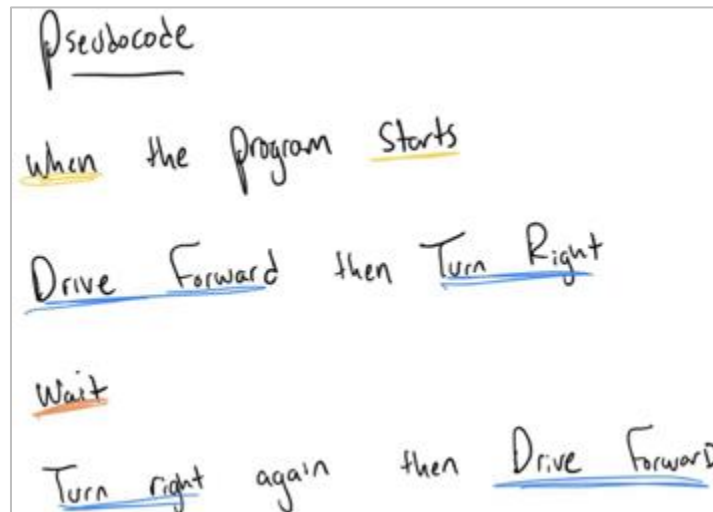 Pseudocode
When the program Starts
Drive Forward then Turn Right
Wait
Turn right again then Drive Forward